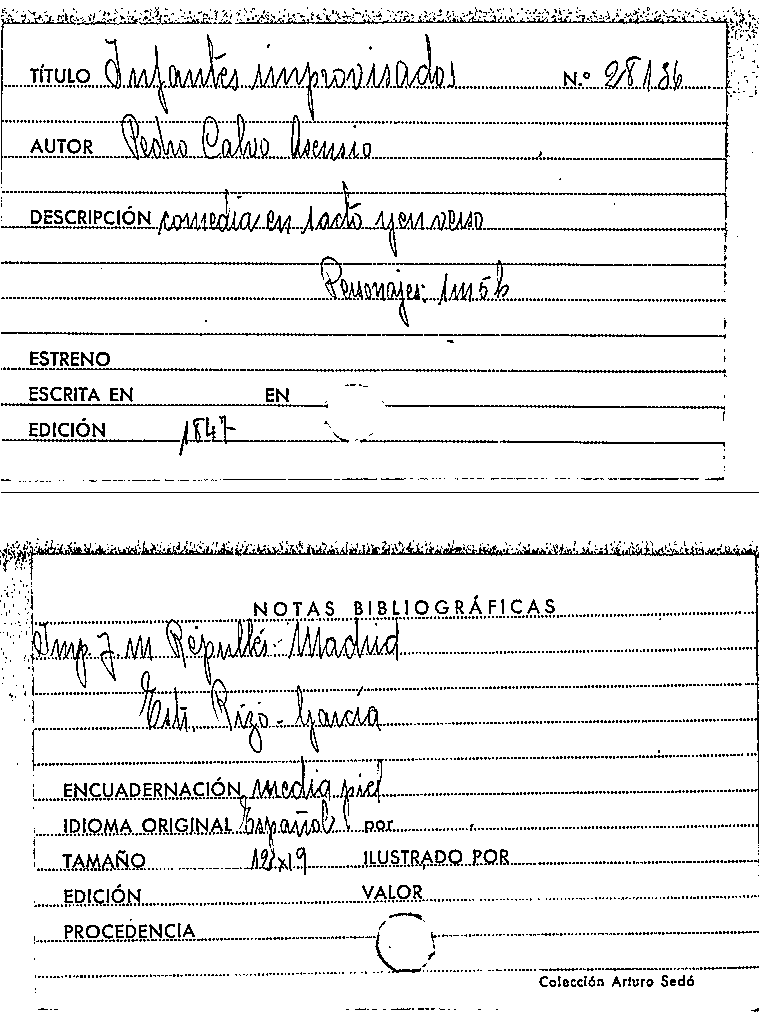 TÍTULO Infantes improvisados N.º 28136
AUTOR Pedro Calvo Asensio
DESCRIPCIÓN comedia en 1 acto y en verso
Personajes: 1m 5h
ESTRENO
ESCRITA EN EN
EDICIÓN 1847
NOTAS BIBLIOGRÁFICAS
Imp J. M Repullés - Madrid
Estr. Rizo - García
ENCUADERNACIÓN media piel
IDIOMA ORIGINAL Español por
TAMAÑO 12x19 ILUSTRADO POR
EDICIÓN VALOR
PROCEDENCIA
Colección Arturo Sedó